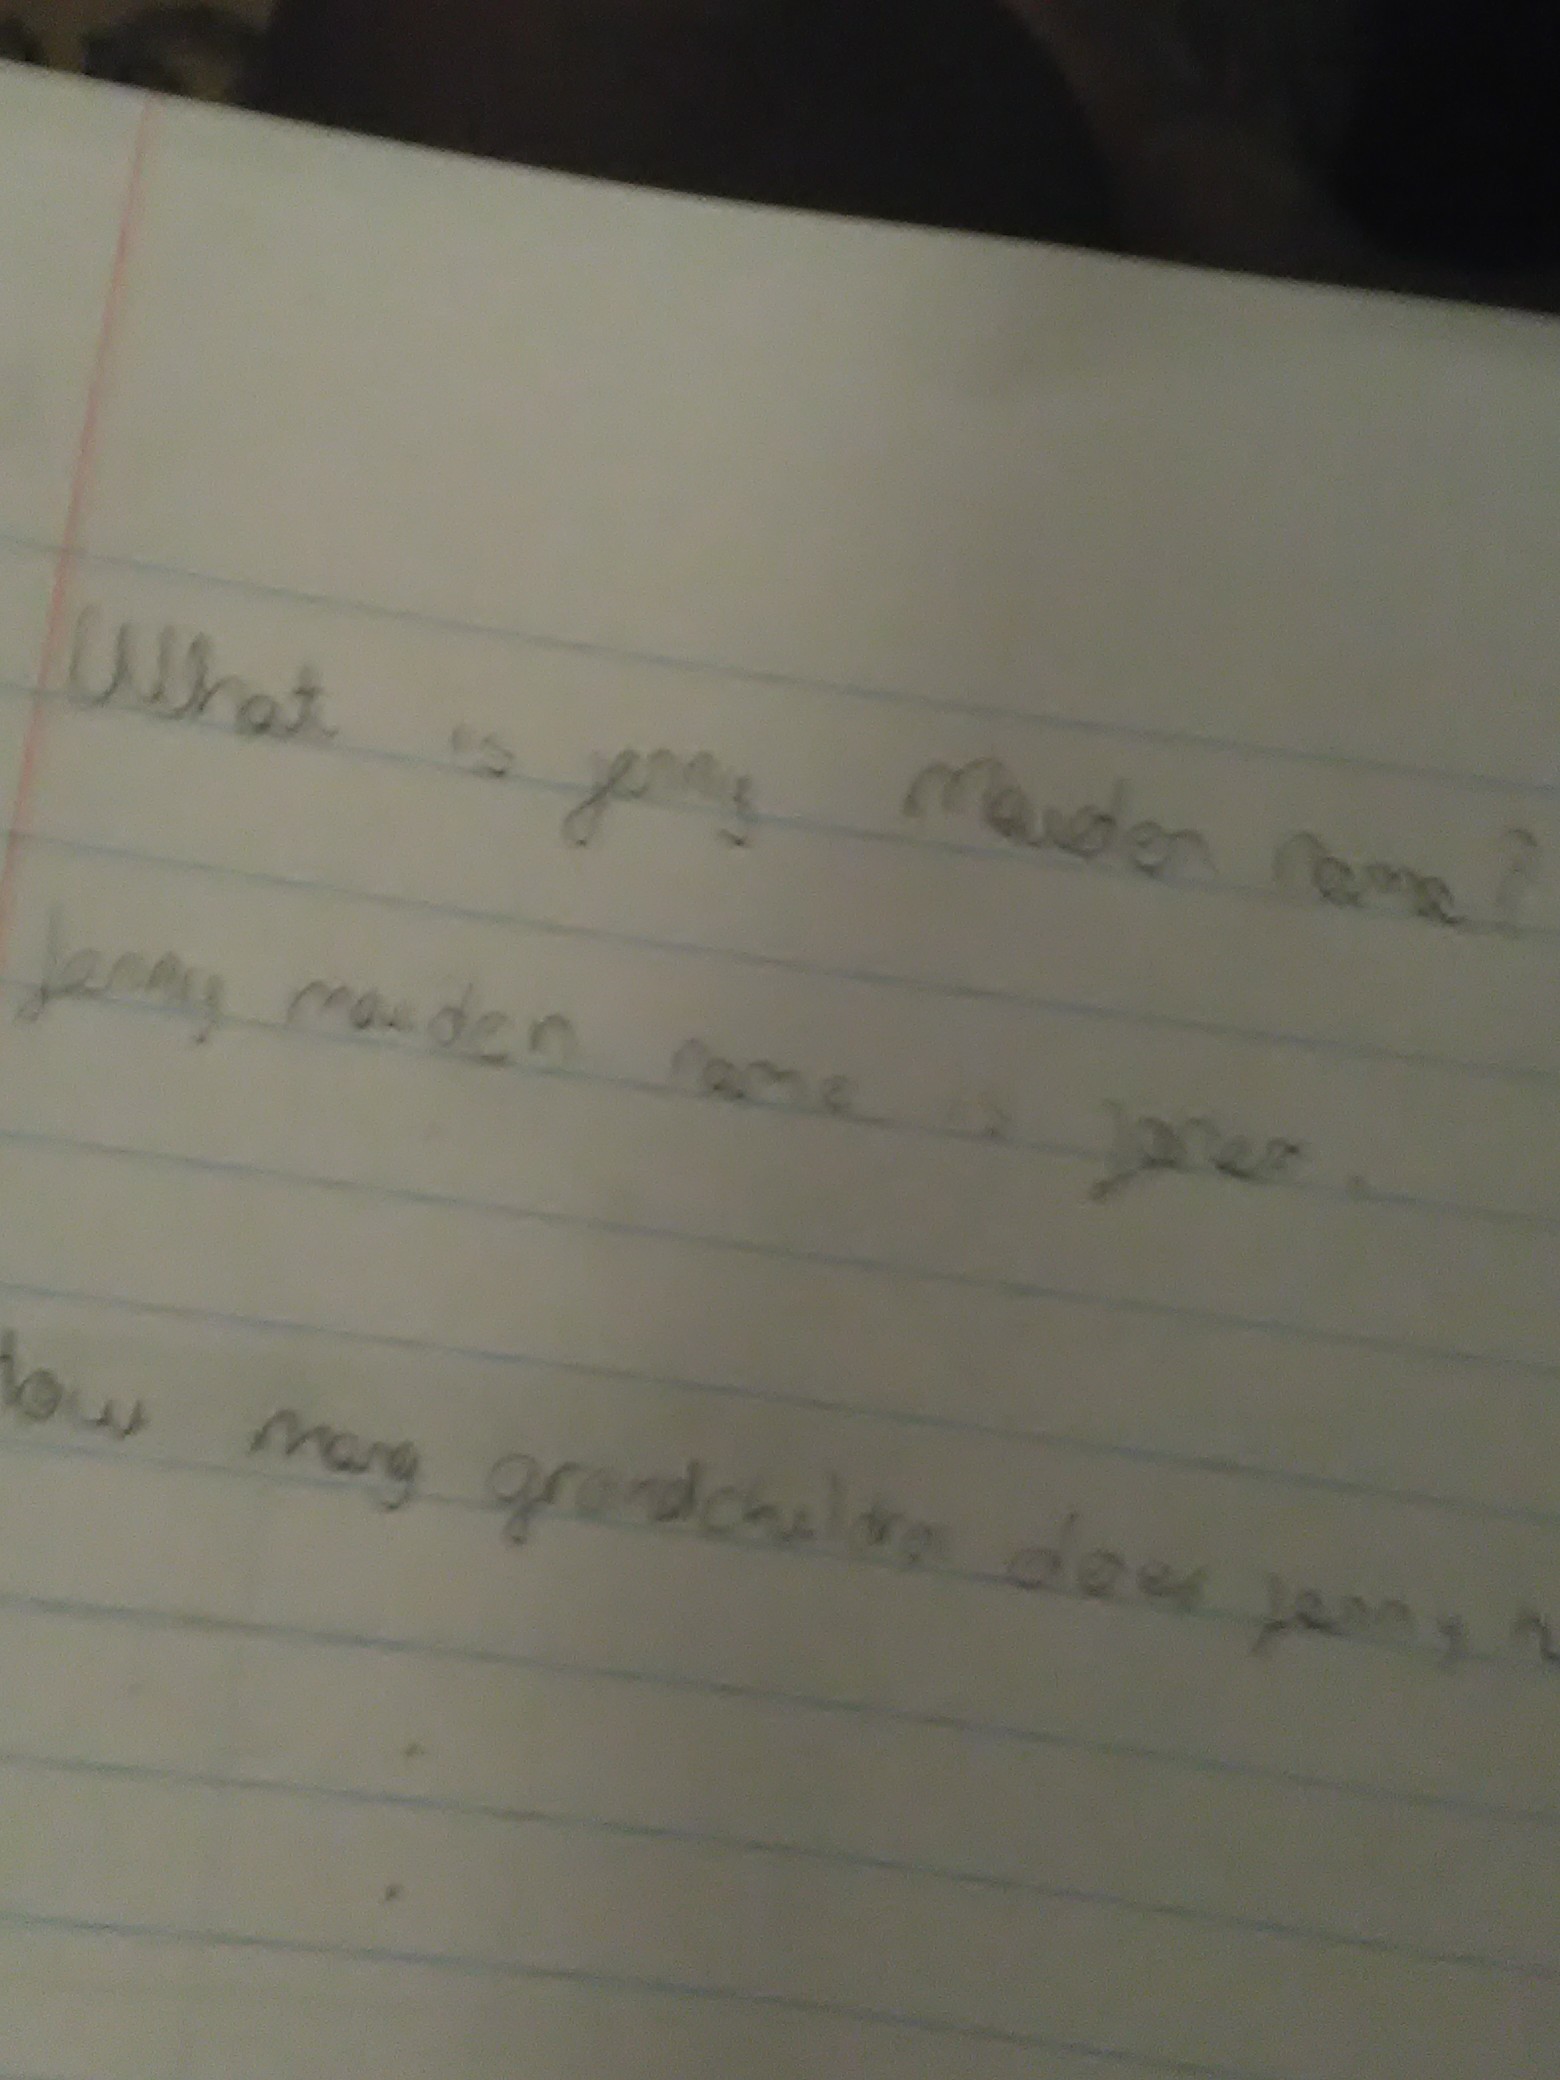 What is jenny Maiden name?
Jenny maiden name is
How many does jenny